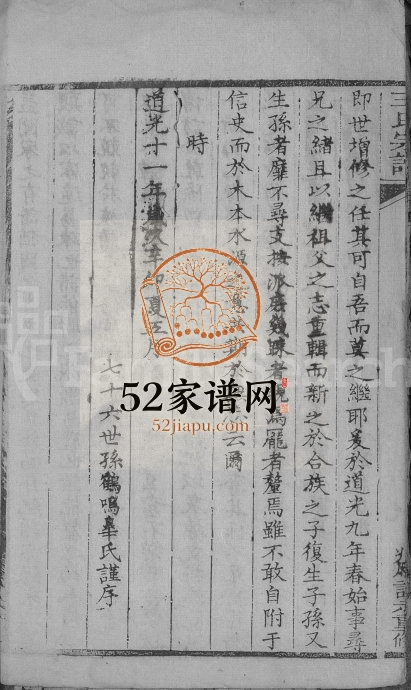 王氏宗譜
即世增修之任其可自吾而莫之繼耶爰於道光九年春始事尋
兄之緒且以繼祖父之志重輯而新之於合族之子復生子孫又
生孫者靡不尋支按派庶幾踈者親焉尨者釐焉雖不敢自附于
信史而於木本水源之意云爾
時
道光十一年歲次辛卯夏五月
七十六世孫鶴鳴臯氏謹序
52家谱网
52jiapu.com